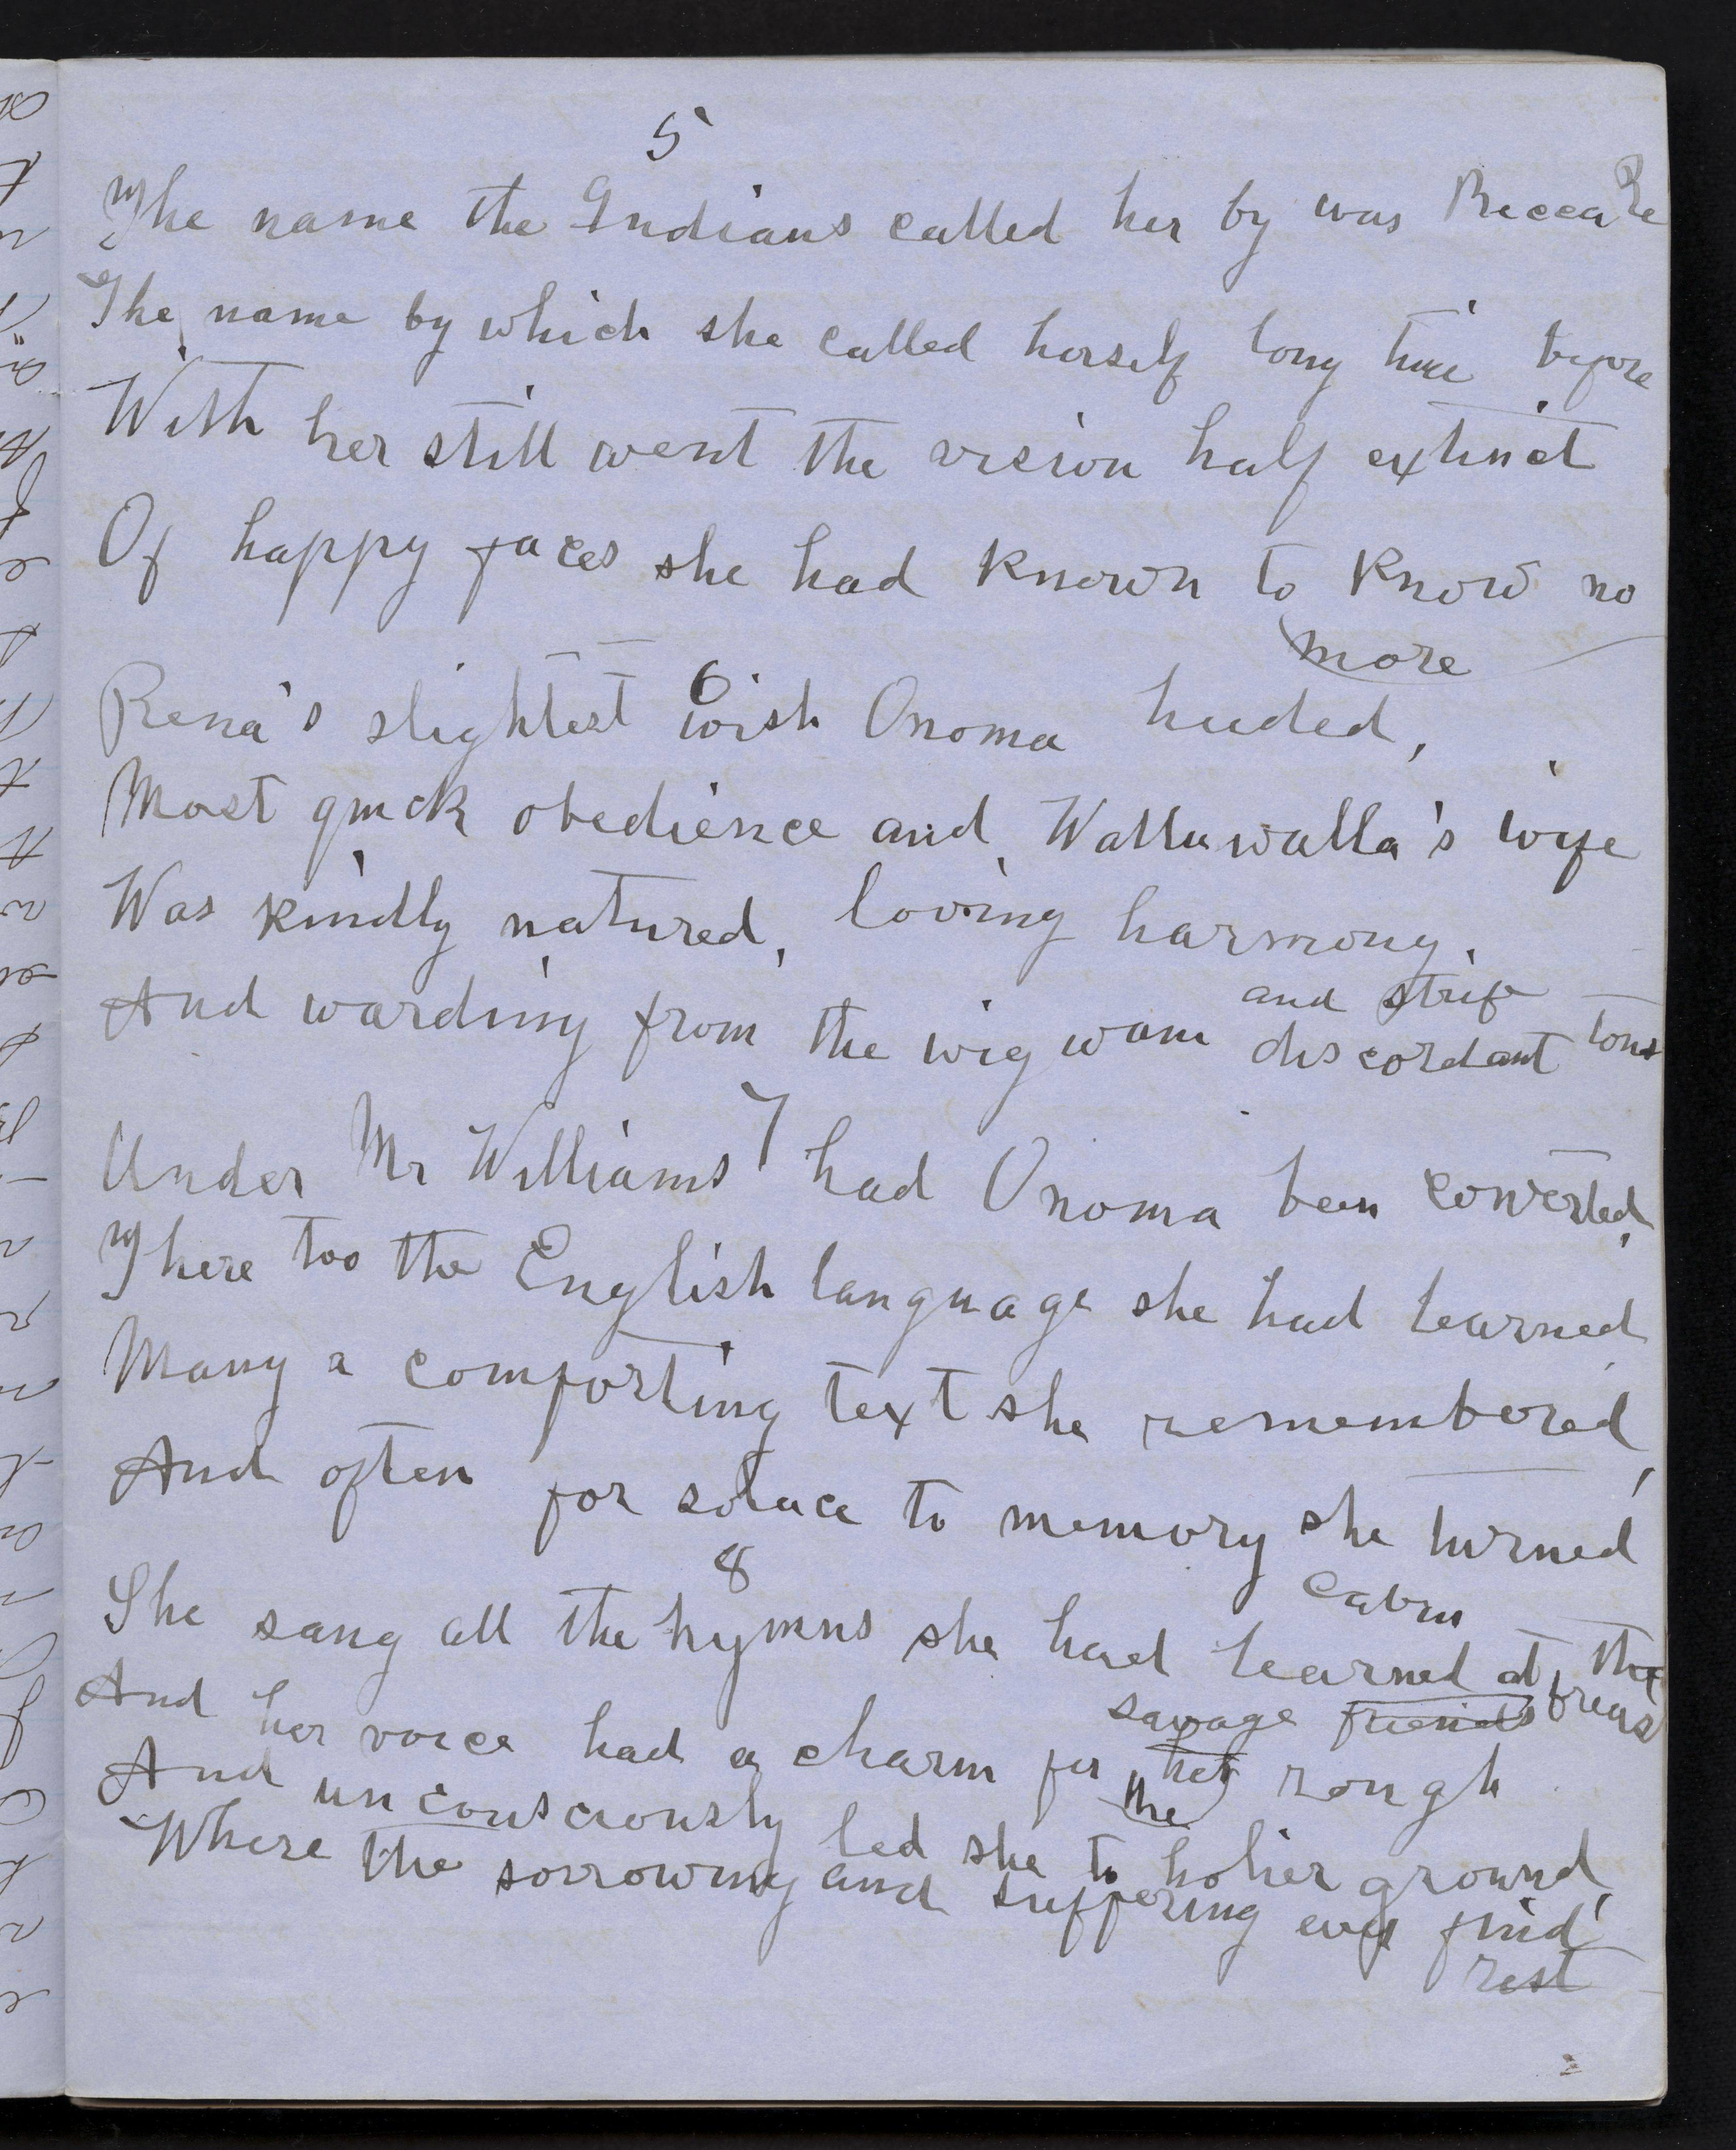 5
The name the Indians called her by was
The name by which she called herself long time before
With her still went the vision half extinct
Of happy faces she had known to know no
more
6
Rena's slightest wish Onoma heeded,
Most quick obedience and Wallawalla's wife
Was kindly natured, loving harmony,
and strife
And warding from the wigwam discordant tones
7
Under Mr Williams had Onoma been converted,
There too the English language she had learned
Many a comforting text she remembered,
And often for solace to memory she turned
8
cabin
She sang all the hymns she had learned at the
savage friends breast
And her voice had a charm for her rough
the
And unconsciously led she to holier ground,
Where the sorrowing and suffering ever find
rest